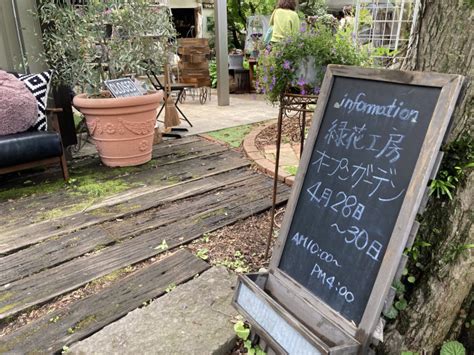 information
緑花工房
オープンガーデン
4月28日
～30日
AM10:00～
PM4:00